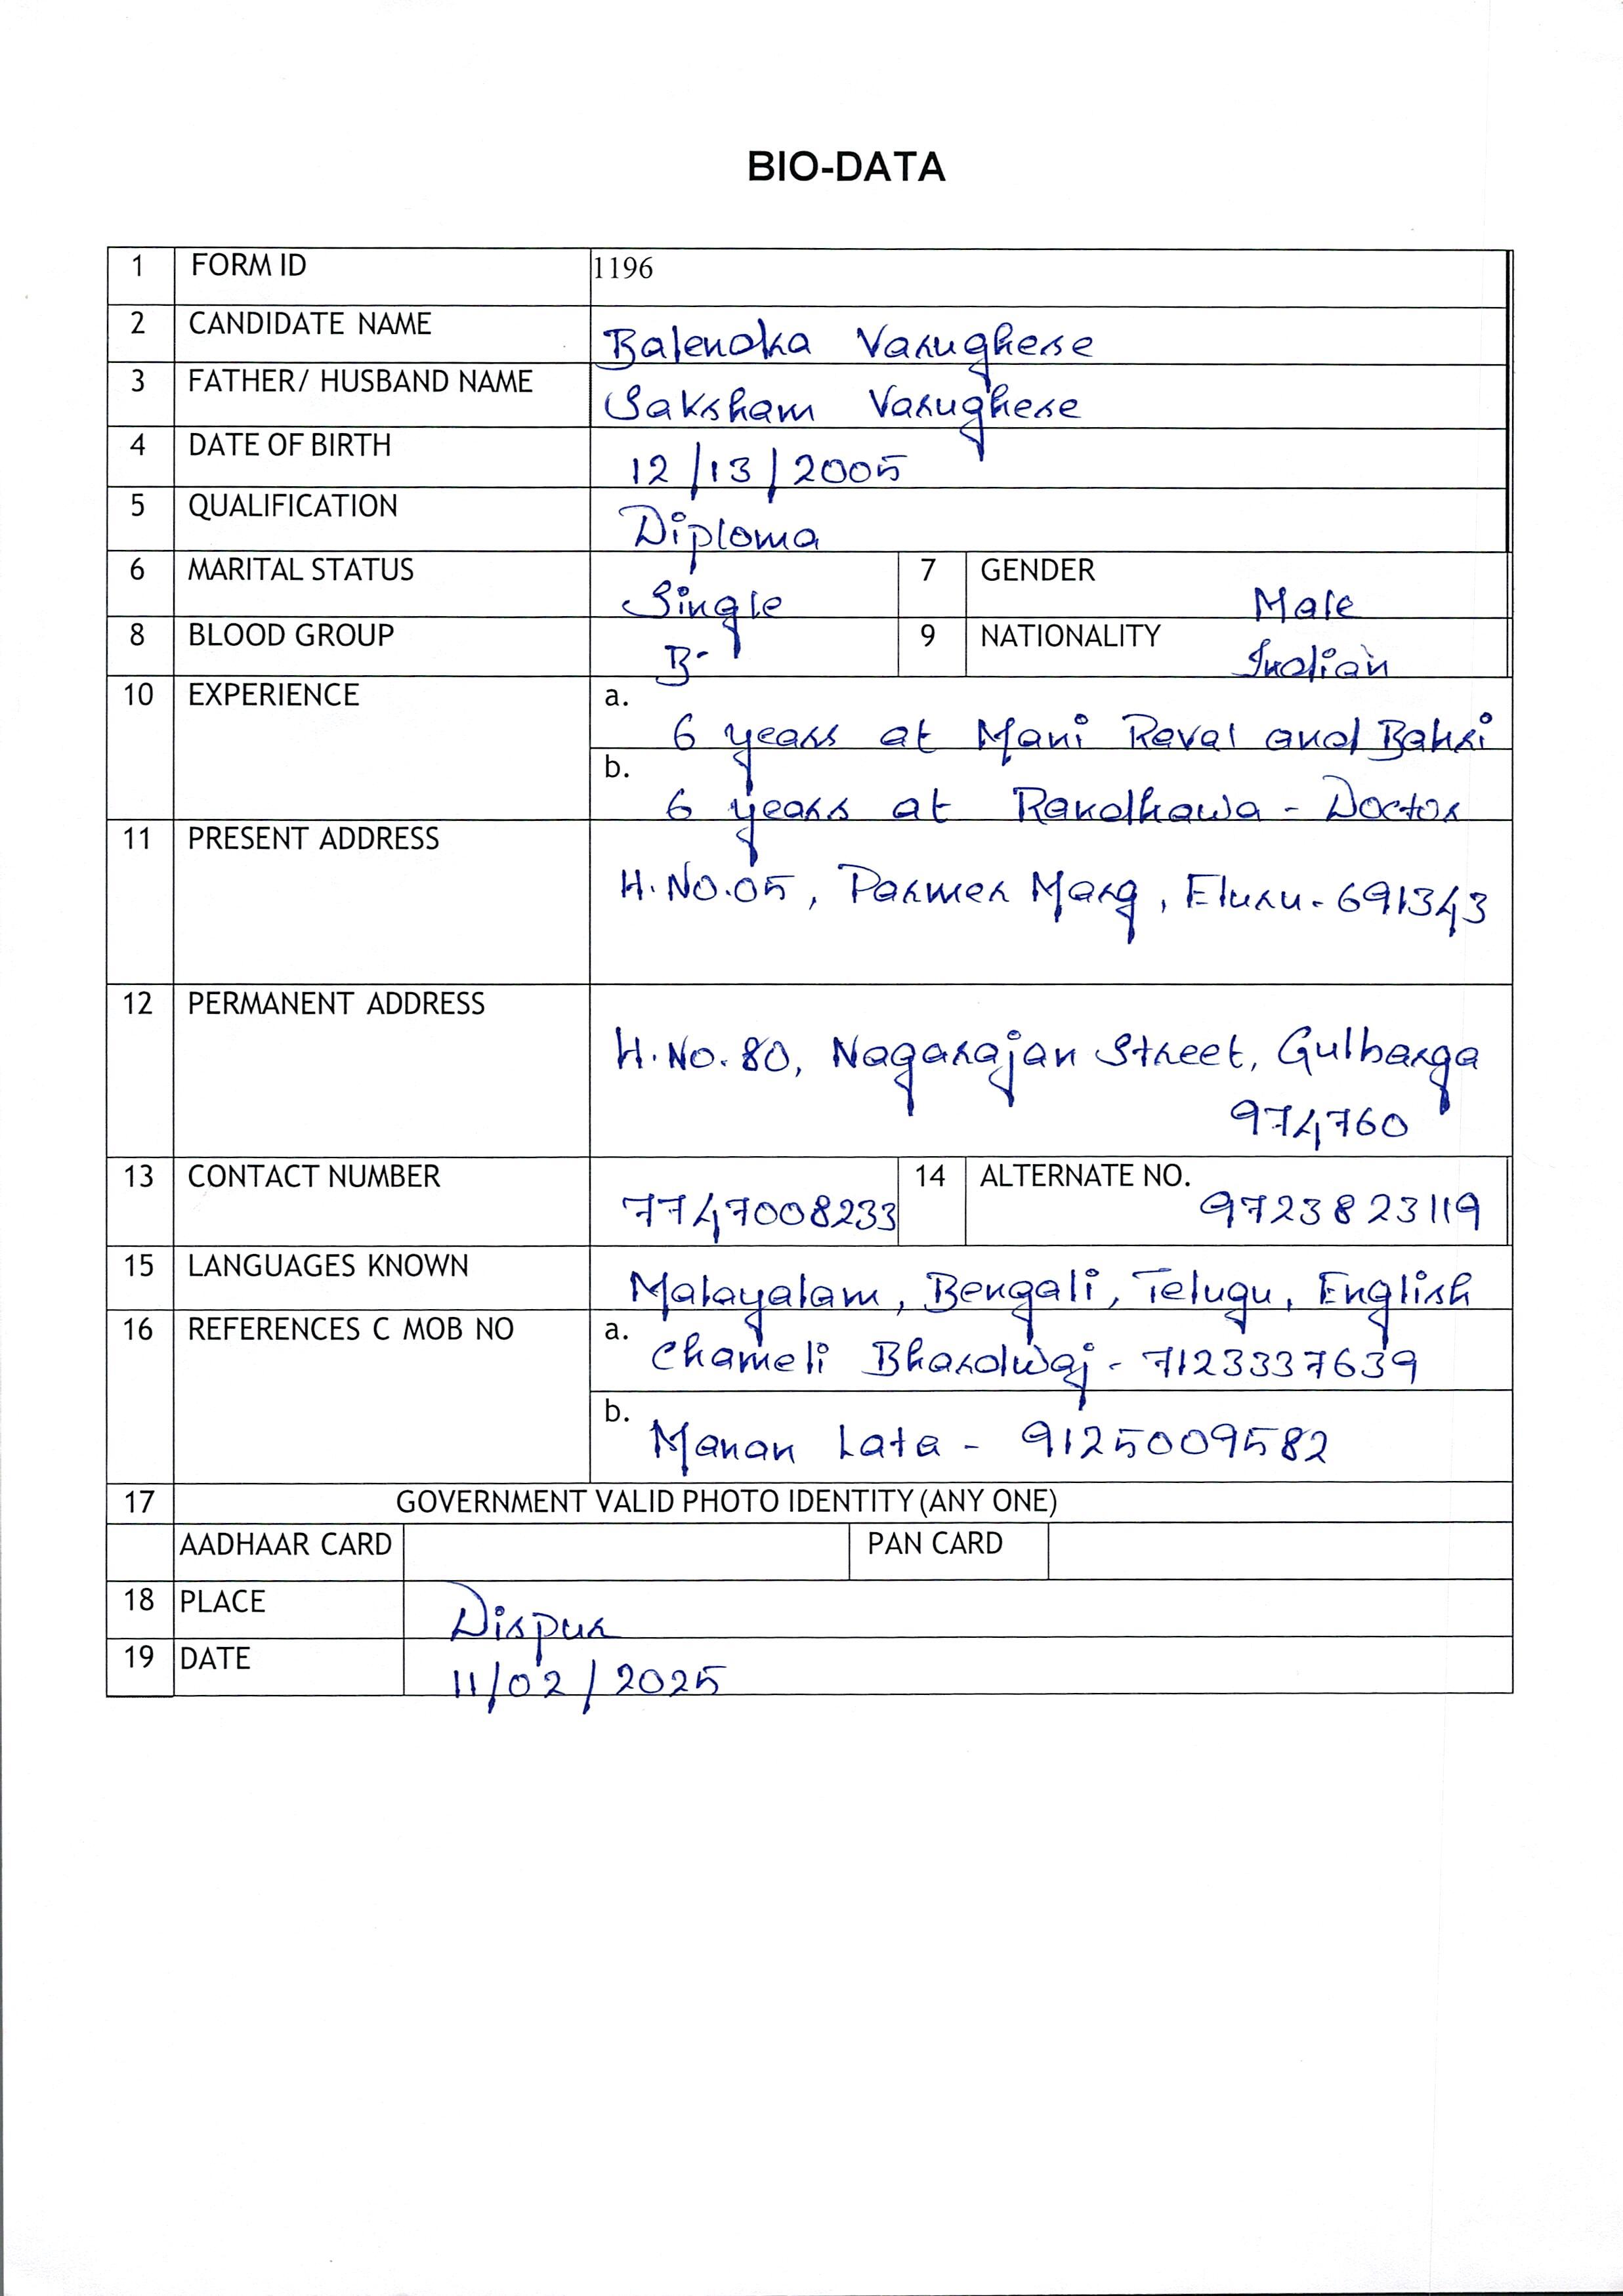 BIO-DATA
1 FORM ID 1196
2 CANDIDATE NAME Balendra Varughese
3 FATHER/ HUSBAND NAME Saksham Varughese
4 DATE OF BIRTH 12/13/2005
5 QUALIFICATION Diploma
6 MARITAL STATUS Single 7 GENDER Male
8 BLOOD GROUP B- 9 NATIONALITY Indian
10 EXPERIENCE a. 6 years at Mani Raval and Bahri
b. 6 years at Randhawa - Doctor
11 PRESENT ADDRESS H.No.05, Parmer Marg, Eluru-691343
12 PERMANENT ADDRESS H.No.80, Nagarajan Street, Gulbarga
974760
13 CONTACT NUMBER 7747008233 14 ALTERNATE NO. 9723823119
15 LANGUAGES KNOWN Malayalam, Bengali, Telugu, English
16 REFERENCES C MOB NO a. Chameli Bhardwaj - 7123337639
b. Manan Lata - 9125009582
17 GOVERNMENT VALID PHOTO IDENTITY (ANY ONE)
AADHAAR CARD PAN CARD
18 PLACE Dispur
19 DATE 11/02/2025